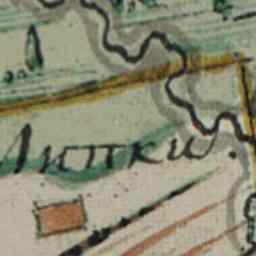 Липки.